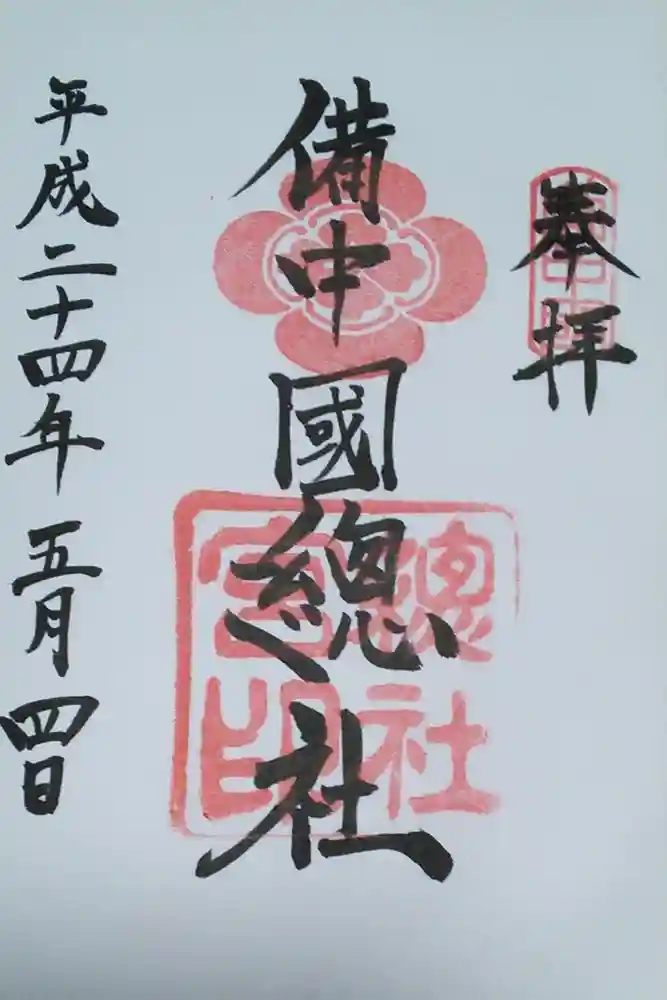 奉拝
備中國總社
總社
宮印
平成二十四年五月四日